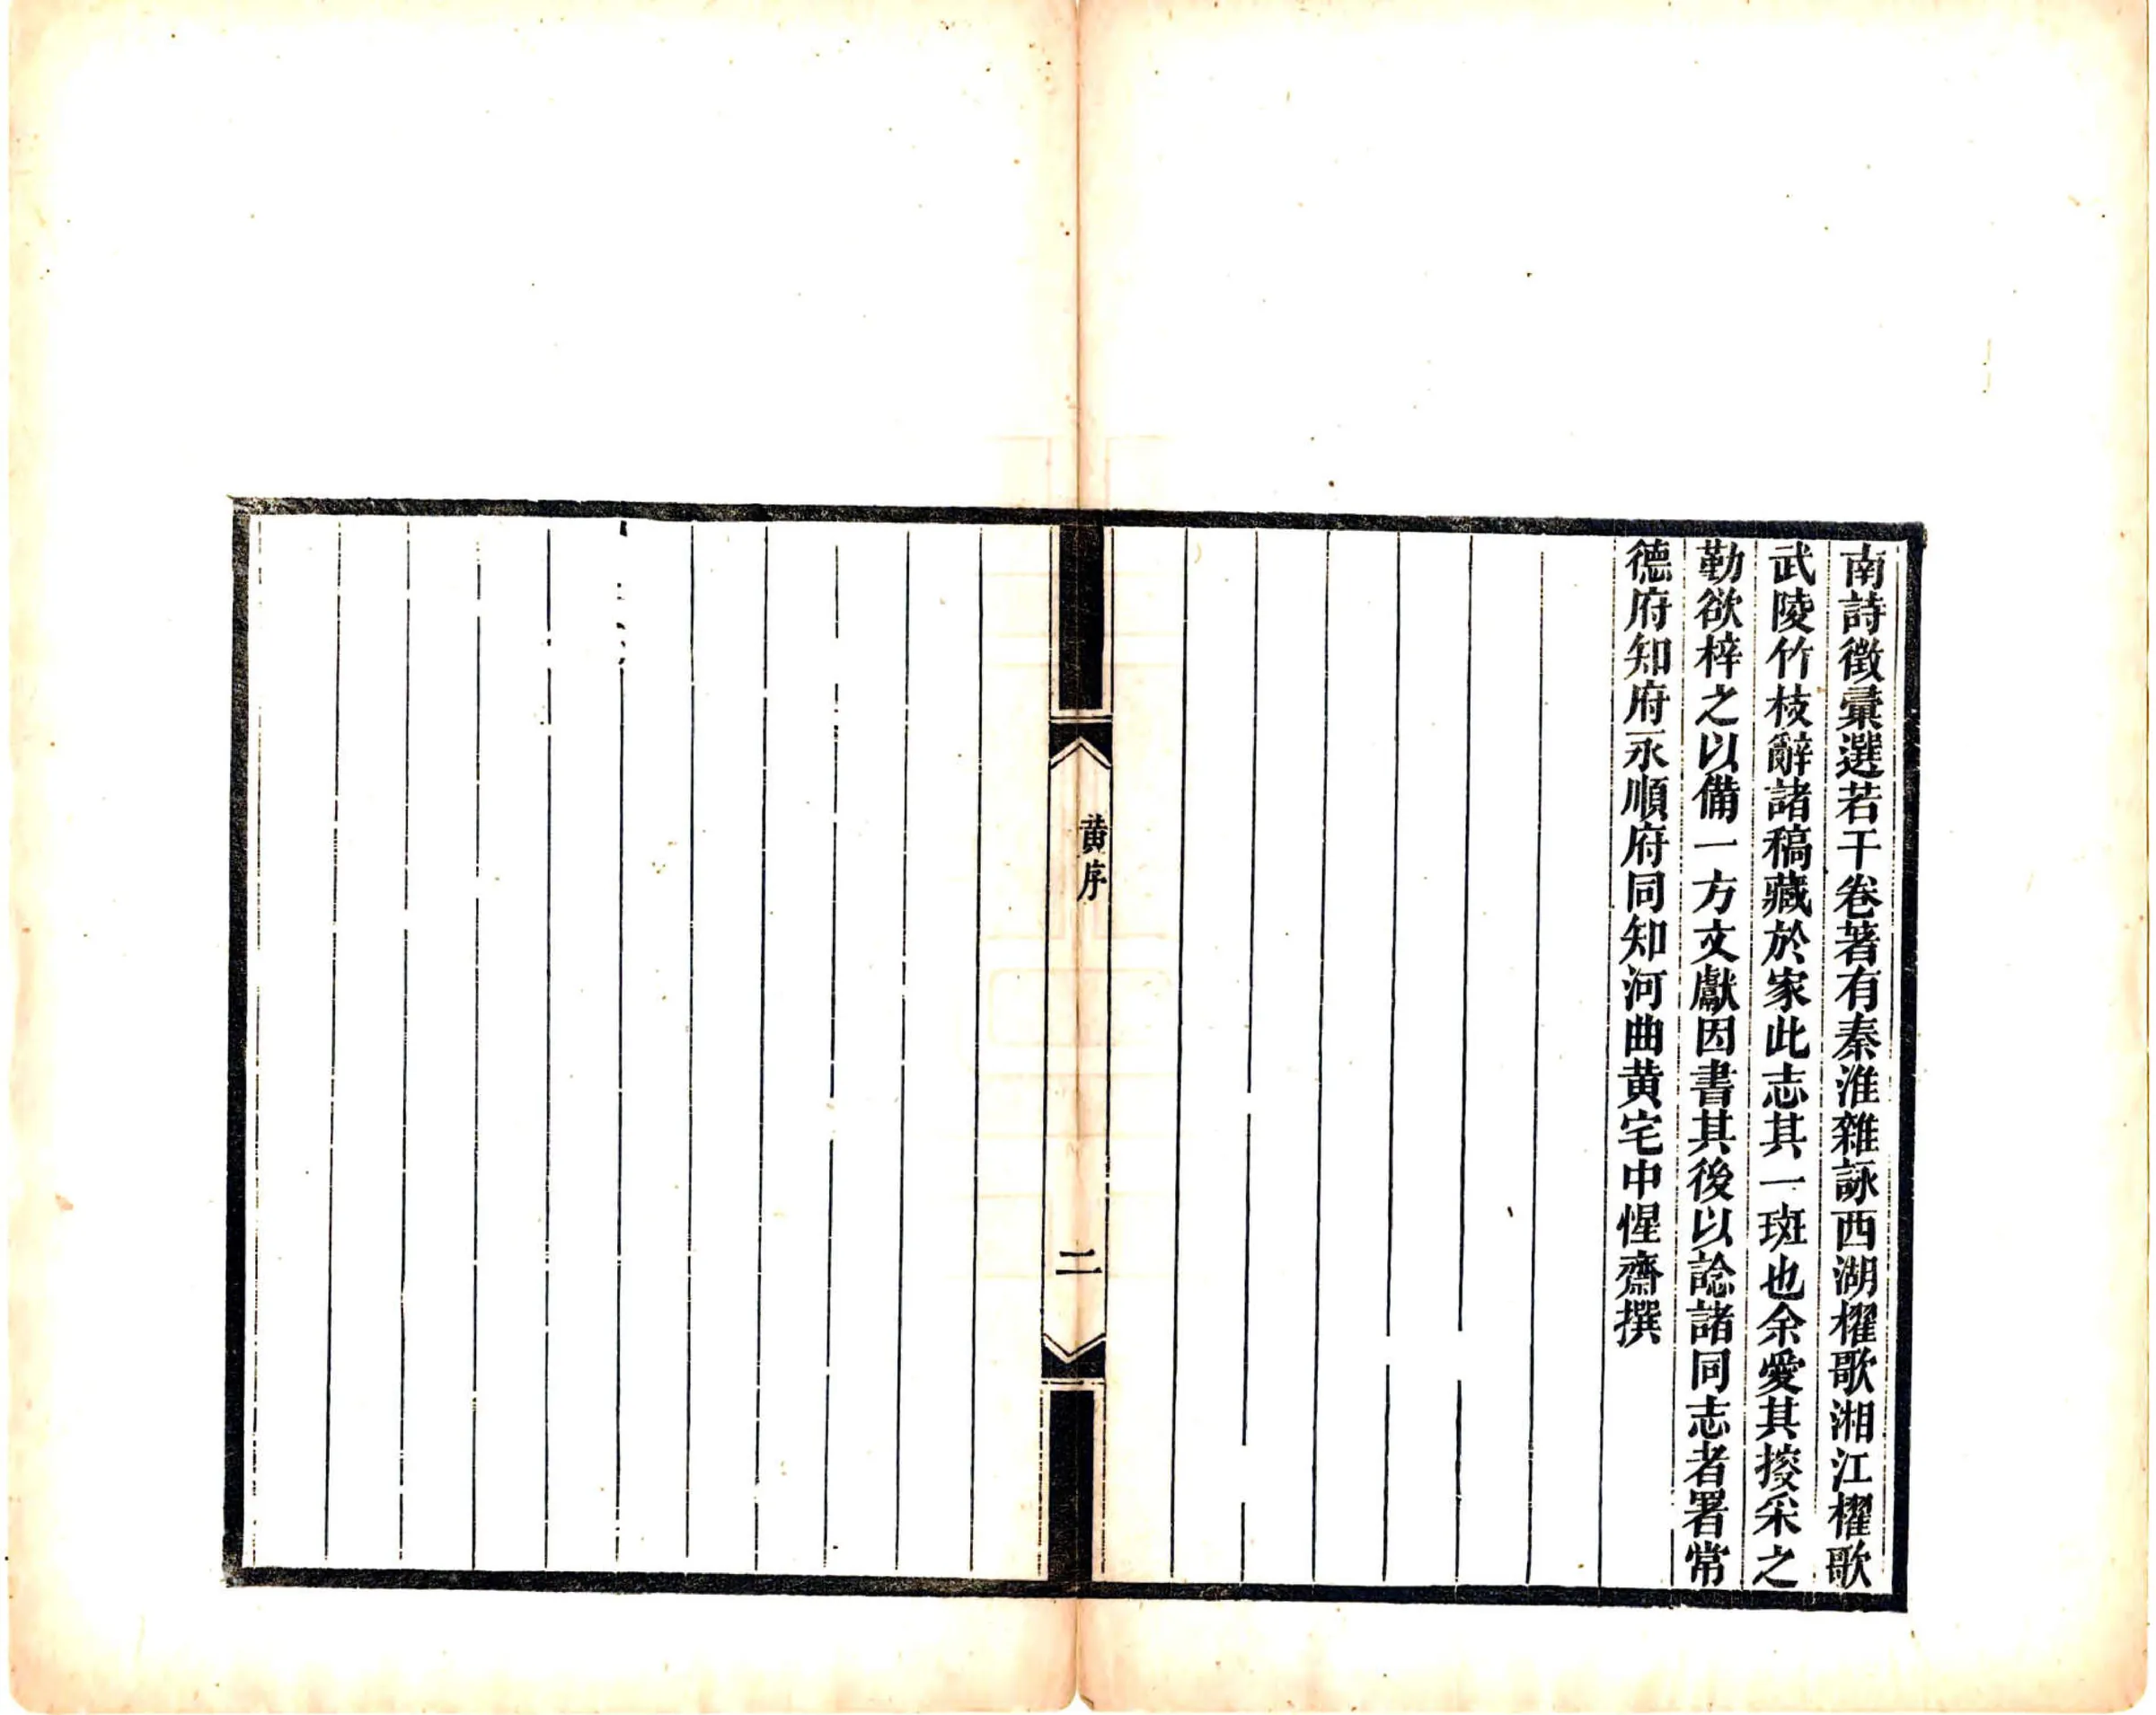 南詩徵彙選若干卷著有秦淮雜詠西湖櫂歌湘江櫂歌
武陵竹枝辭諸稿藏於家此志其一斑也余愛其搜采之
勤欲梓之以備一方文獻因書其後以諗諸同志者署常
德府知府永順府同知河曲黄宅中惺齋撰
黄序
二